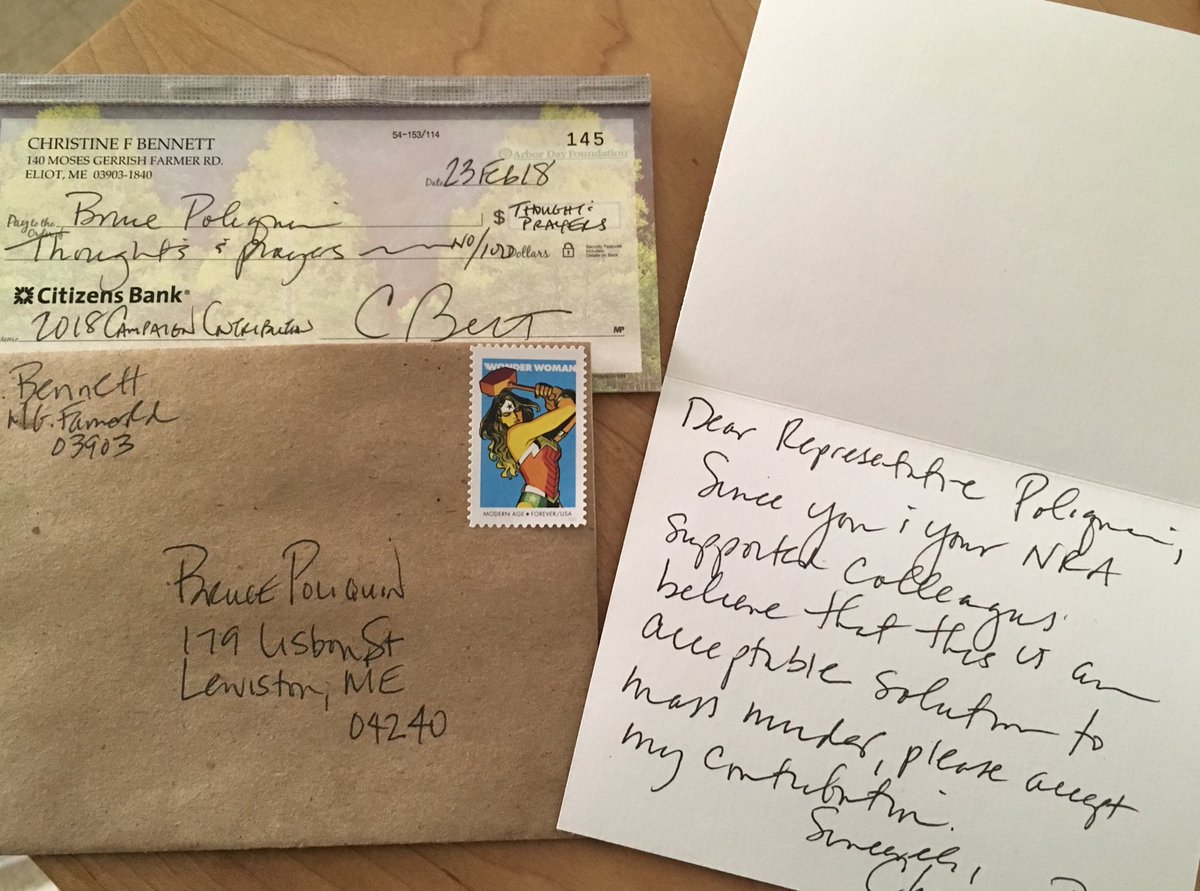 CHRISTINE F BENNETT
140 MOSES GERRISH FARMER RD.
ELIOT, ME 03903-1840
54-153/114
145
Arbor Day Foundation
Date 23 Feb 18
Pay to the Order of Bruce Poliquin $ THOUGHTS & PRAYERS
Thoughts & prayers NO/100 Dollars
Security Features Included. Details on Back.
Citizens Bank
2018 CAMPAIGN CONTRIBUTION
C Bennett
MP
Bennett
M.G. Farmer Rd
03903
WONDER WOMAN
MODERN AGE • FOREVER/USA
BRUCE POLIQUIN
179 Lisbon St
Lewiston, ME
04240
Dear Representative Poliquin,
Since you & your NRA
supported colleagues
believe that this is an
acceptable solution to
mass murder, please accept
my contribution.
Sincerely,